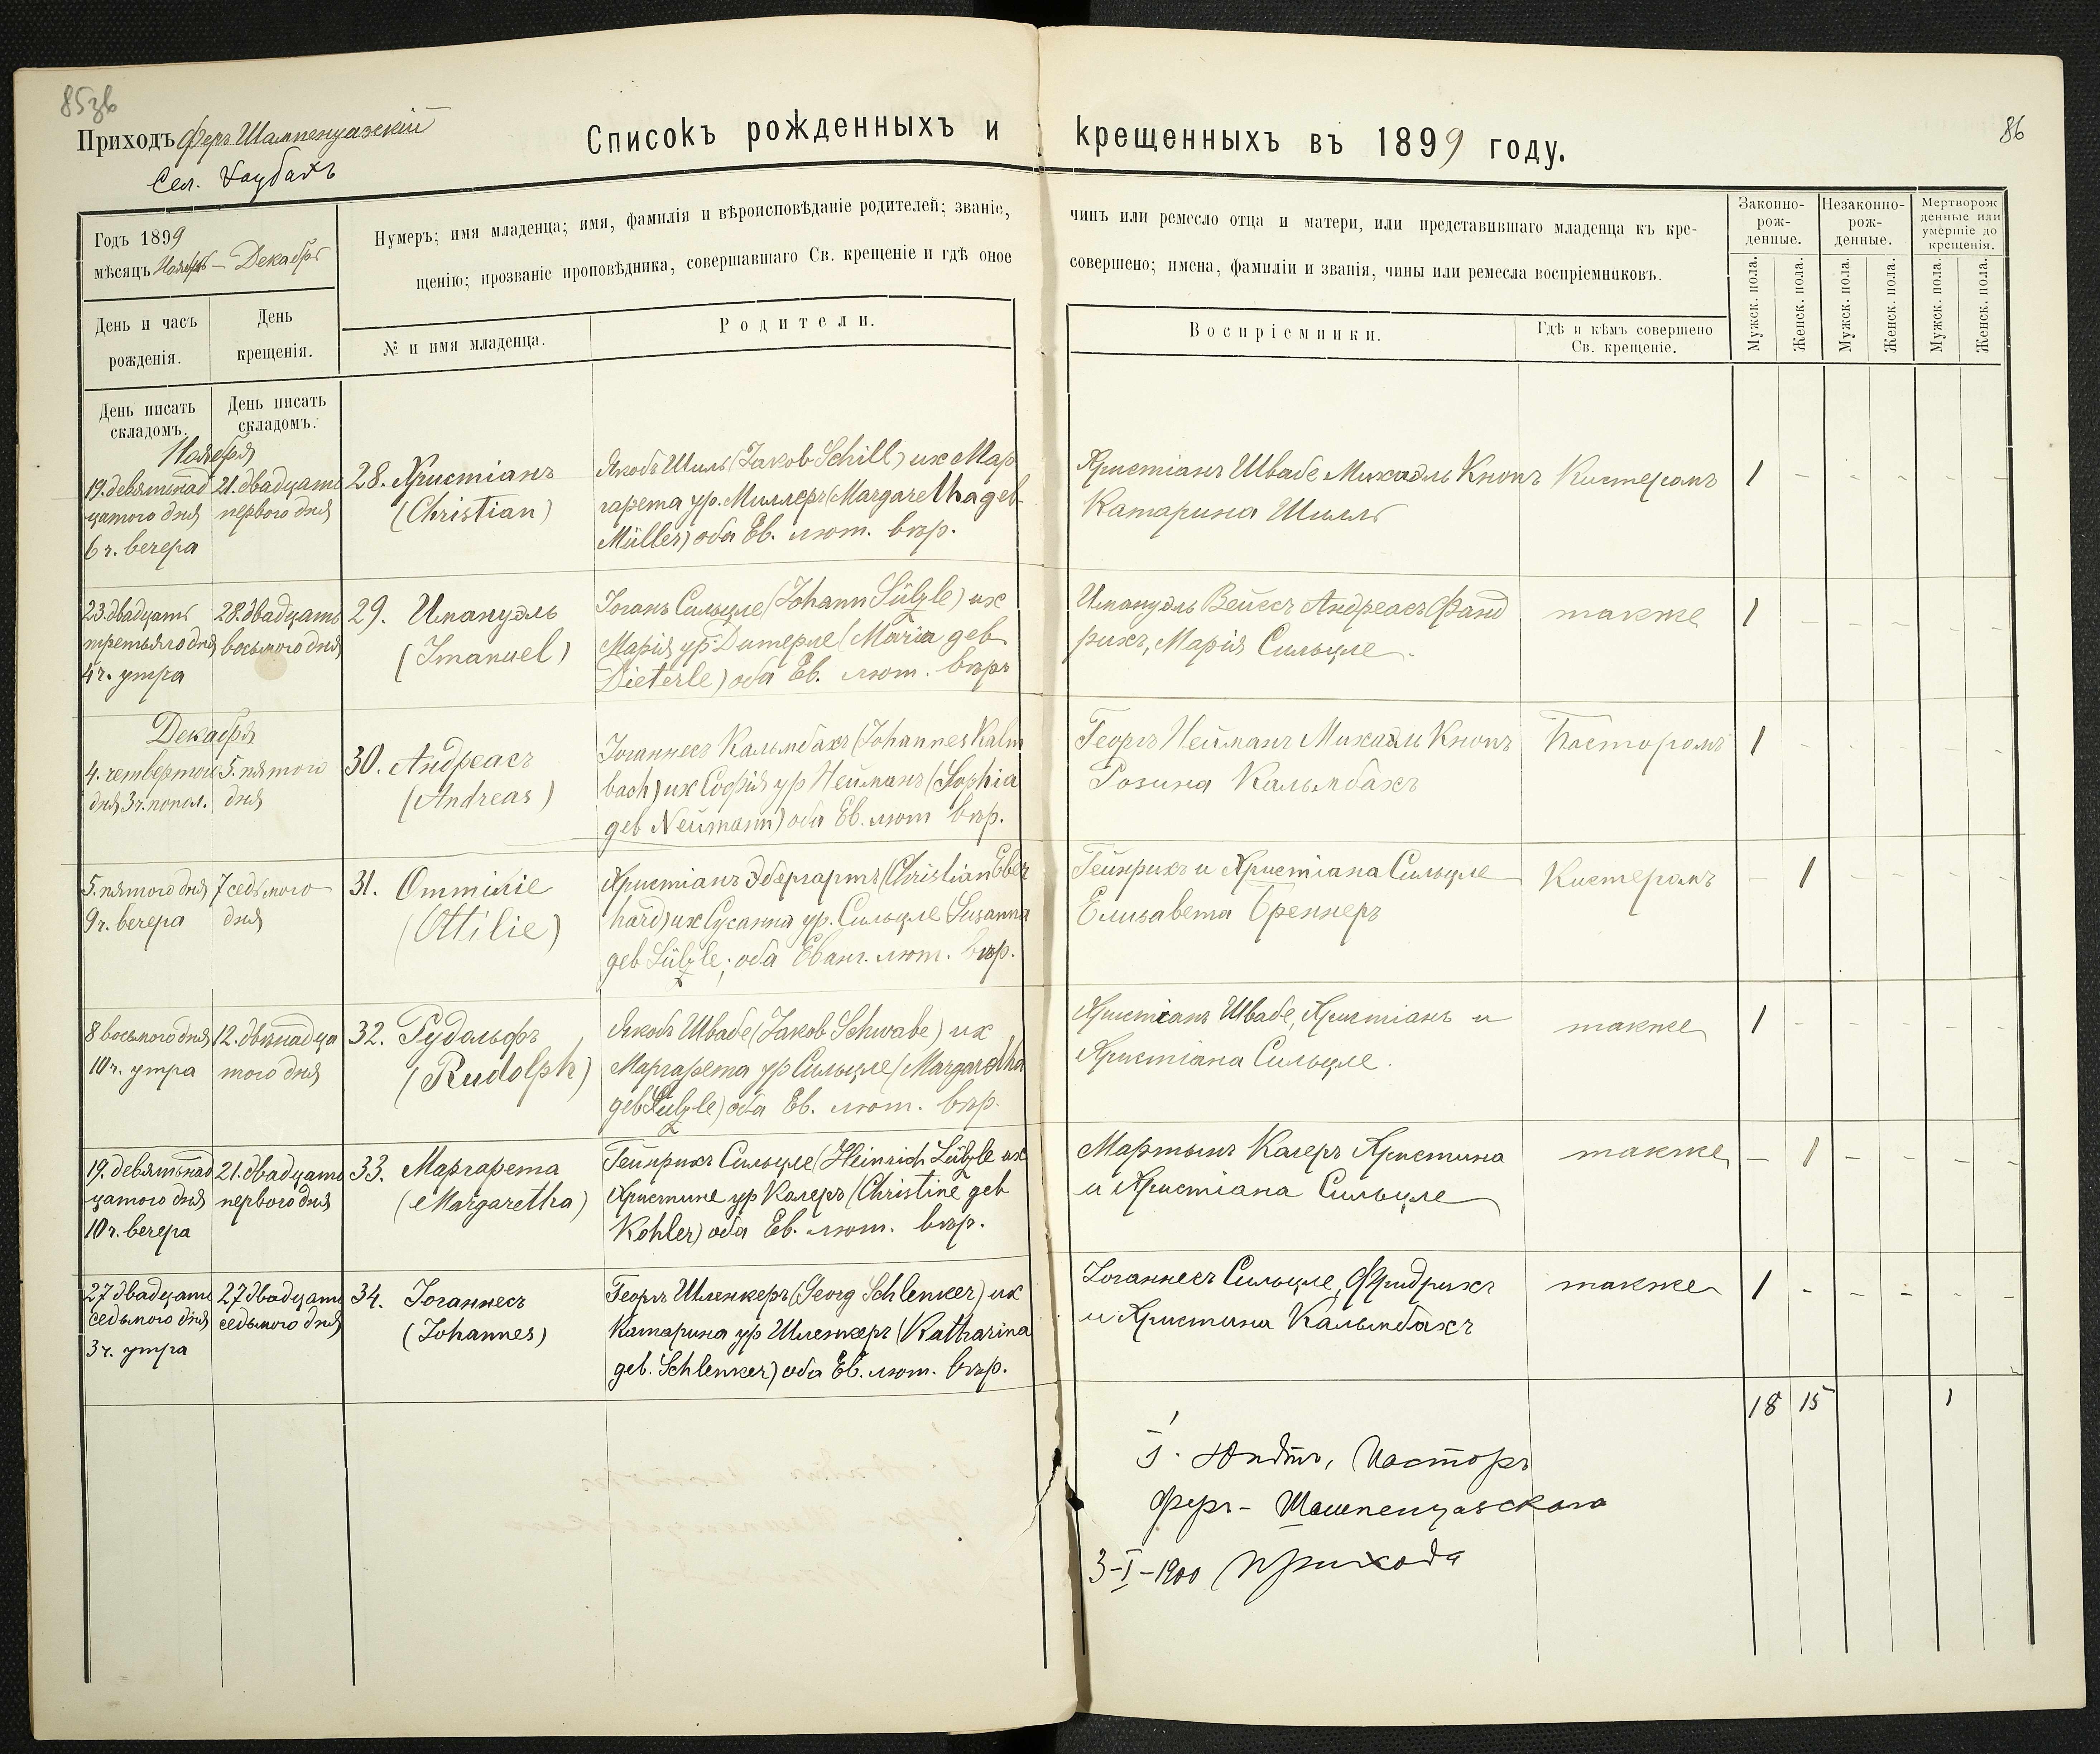 85зв
86
Приходъ Феръ Шампенуазскій
Сел. Каубахъ
Списокъ рожденныхъ и крещенныхъ въ 1899 году.
Годъ 1899
мѣсяцъ Ноябрь – Декабрь
Нумеръ; имя младенца; имя, фамилія и вѣроисповѣданіе родителей; званіе, чинъ или ремесло отца и матери, или представившаго младенца къ кре-
щенію; прозваніе проповѣдника, совершавшаго Св. крещеніе и гдѣ оное совершено; имена, фамиліи и званія, чины или ремесла воспріемниковъ.
Законно-
рож-
денные.
Незаконно-
рож-
денные.
Мертворож
денные или
умершіе до
крещенія.
День и часъ
рожденія.
День
крещенія.
№ и имя младенца.
Родители.
Воспріемники.
Гдѣ и кѣмъ совершено
Св. крещеніе.
Мужск. пола.
Женск. пола.
Мужск. пола.
Женск. пола.
Мужск. пола.
Женск. пола.
День писать
складомъ.
День писать
складомъ.
Ноября
19. девятнад
цатого дня
6 ч. вечера
21. двадцать
первого дня
28. Христіанъ
(Christian)
Якобъ Шиль (Jakob Schill) их Мар
гарета ур. Миллеръ (Margaretha geb
Müller) оба Ев. лют. вѣр.
Христіанъ Швабе Михаэль Кнопъ
Катарина Шилль
Кистеромъ
1 – – – – –
23. двадцать
третьяго дня
4 ч. утра
28. двадцать
восьмого дня
29. Имануэль
(Imanuel)
Іоганъ Сильцле (Johann Sülzle) их
Марія ур. Дитерле (Maria geb
Dieterle) оба Ев. лют. вѣръ
Имануэль Вейссъ Андреасъ Фанд
рихъ, Марія Сильцле.
также
1 – – – – –
Декабря
4. четвертого
дня 3 ч. попол.
5. пятого
дня
30. Андреасъ
(Andreas)
Іоганнесъ Кальмбахъ (Johannes Kalm
bach) их Софія ур Нейманъ (Sophia
geb Neümann) оба Ев. лют вѣр.
Георгъ Нейманъ Михаэль Кнопъ
Розина Кальмбахъ
Пасторомъ
1 – – – – –
5. пятого дня
9 ч. вечера
7 седьмого
дня
31. Оттиліе
(Ottilie)
Христіанъ Эбергартъ (Christian Eber
hard) их Сусанна ур. Сильцле Susanna
geb Sülzle; оба Еванг. лют. вѣр.
Гейнрихъ и Христіана Сильцле
Елизавета Бреннеръ
Кистеромъ
– 1 – – – –
8 восьмого дня
10 ч. утра
12. двѣнадца
того дня
32. Рудольфъ
(Rudolph)
Якобъ Швабе (Jakob Schwabe) их
Маргарета ур Сильцле (Margaretha
geb Sülzle) оба Ев. лют. вѣр.
Христіанъ Швабе, Христіанъ и
Христіана Сильцле.
также
1 – – – – –
19. девятнад
цатого дня
10 ч. вечера
21. двадцать
первого дня
33. Маргарета
(Margaretha)
Гейнрихъ Сильцле (Heinrich Sülzle их
Христине ур Калеръ (Christine geb
Kohler) оба Ев. лют. вѣр.
Мартынъ Калеръ Христина
и Христіана Сильцле
также
– 1 – – – –
27 двадцать
седьмого дня
3 ч. утра
27 двадцать
седьмого дня
34. Іоганнесъ
(Johannes)
Георгъ Шленкеръ (Georg Schlenker) их
Катарина ур Шленкеръ (Katharina
geb. Schlenker) оба Ев. лют. вѣр.
Іоганнесъ Сильцле, Фридрихъ
и Христина Кальмбахъ
также
1 – – – – –
18 15 1
Пасторъ
Феръ-Шампенуазскаго
3-I-1900 Прихода